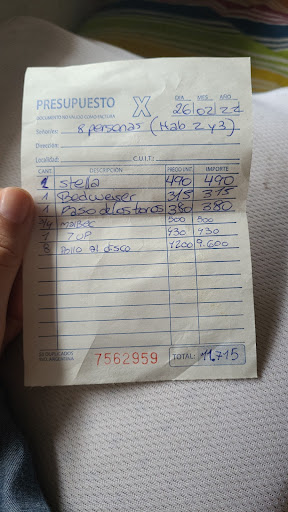 PRESUPUESTO X DIA MES AÑO
DOCUMENTO NO VALIDO COMO FACTURA 26/02/22
Señor/es: 8 personas (Hab 2 y 3)
Dirección:
Localidad: C.U.I.T.:
CANT. DESCRIPCIÓN PRECIO UNIT. IMPORTE
1 Stella 490 490
1 Budweiser 315 315
1 Paso de los toros 380 380
3/4 Malbec 500 500
1 7UP 430 430
8 Pollo al disco 1200 9.600
50 DUPLICADOS
IND. ARGENTINA 7562959 TOTAL: 11.715